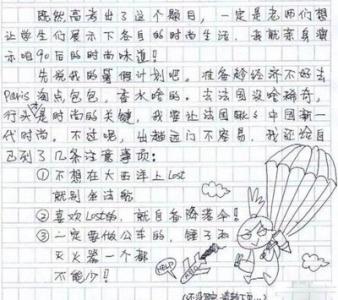 既然高考出了这个题目，一定是老师们想
让学生们展示下各自的时尚生活，我就亲身演
示吧90后的时尚味道！
先说我的暑假计划吧。准备趁经济不好去
Paris淘点包包，香水啥的。去法国没啥稀奇，
行头是时尚的关键，我要让法国欧k中国新一
代时尚。不过呢，出趟远门不容易，我还给自
己列了几条注意事项：
①不想在大西洋上Lost
就别坐法航
②喜欢Lost的，就自备降落伞！
③一定要做公车的，锤子和
灭火器一个都
不能少！
HELP
(还没完，请翻下页...)